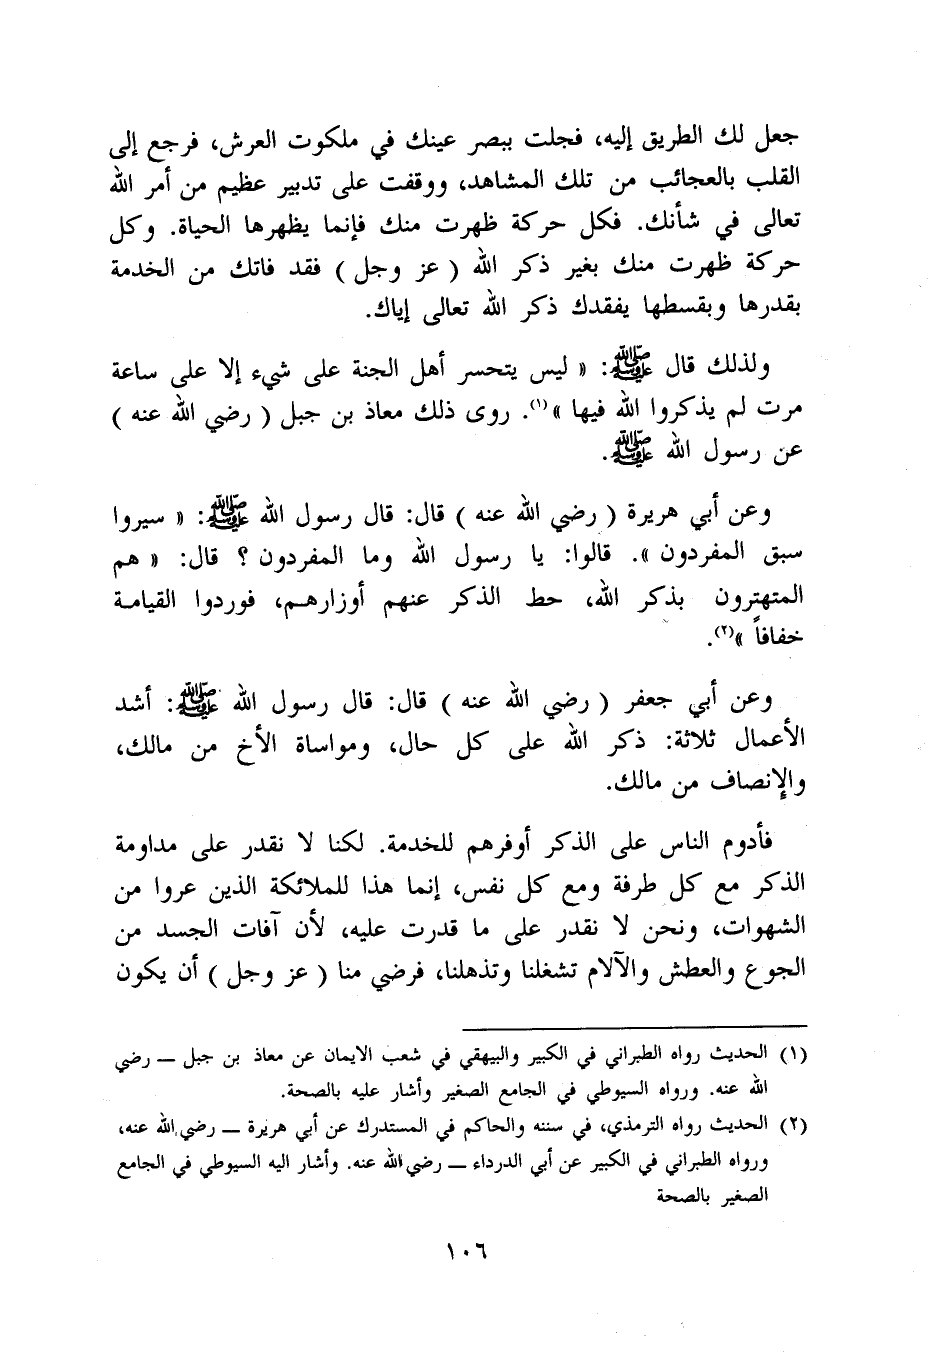 جعل لك الطريق إليه، فجلت ببصر عينك في ملكوت العرش، فرجع إلى
القلب بالعجائب من تلك المشاهد، ووقفت على تدبير عظيم من أمر الله
تعالى في شأنك. فكل حركة ظهرت منك فإنما يظهرها الحياة. وكل
حركة ظهرت منك بغير ذكر الله ( عز وجل ) فقد فاتك من الخدمة
بقدرها وبقسطها يفقدك ذكر الله تعالى إياك.
ولذلك قال ﷺ: « ليس يتحسر أهل الجنة على شيء إلا على ساعة
مرت لم يذكروا الله فيها »(١). روى ذلك معاذ بن جبل ( رضي الله عنه )
عن رسول الله ﷺ.
وعن أبي هريرة ( رضي الله عنه ) قال: قال رسول الله ﷺ: « سيروا
سبق المفردون ». قالوا: يا رسول الله وما المفردون ؟ قال: « هم
المتهترون بذكر الله، حط الذكر عنهم أوزارهم، فوردوا القيامة
خفافاً »(٢).
وعن أبي جعفر ( رضي الله عنه ) قال: قال رسول الله ﷺ: أشد
الأعمال ثلاثة: ذكر الله على كل حال، ومواساة الأخ من مالك،
والإنصاف من مالك.
فأدوم الناس على الذكر أوفرهم للخدمة. لكنا لا نقدر على مداومة
الذكر مع كل طرفة ومع كل نفس، إنما هذا للملائكة الذين عروا من
الشهوات، ونحن لا نقدر على ما قدرت عليه، لأن آفات الجسد من
الجوع والعطش والآلام تشغلنا وتذهلنا، فرضي منا ( عز وجل ) أن يكون
(١) الحديث رواه الطبراني في الكبير والبيهقي في شعب الايمان عن معاذ بن جبل — رضي
الله عنه. ورواه السيوطي في الجامع الصغير وأشار عليه بالصحة.
(٢) الحديث رواه الترمذي، في سننه والحاكم في المستدرك عن أبي هريرة — رضي الله عنه،
ورواه الطبراني في الكبير عن أبي الدرداء — رضي الله عنه. وأشار اليه السيوطي في الجامع
الصغير بالصحة
١٠٦